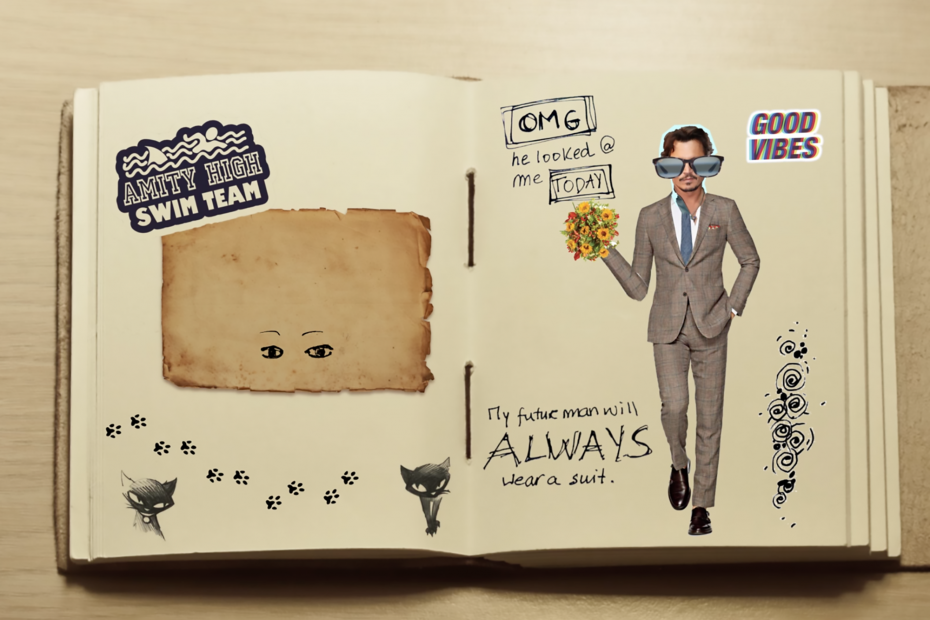 AMITY HIGH
SWIM TEAM
OMG
he looked @
me TODAY
GOOD
VIBES
My future man will
ALWAYS
wear a suit.